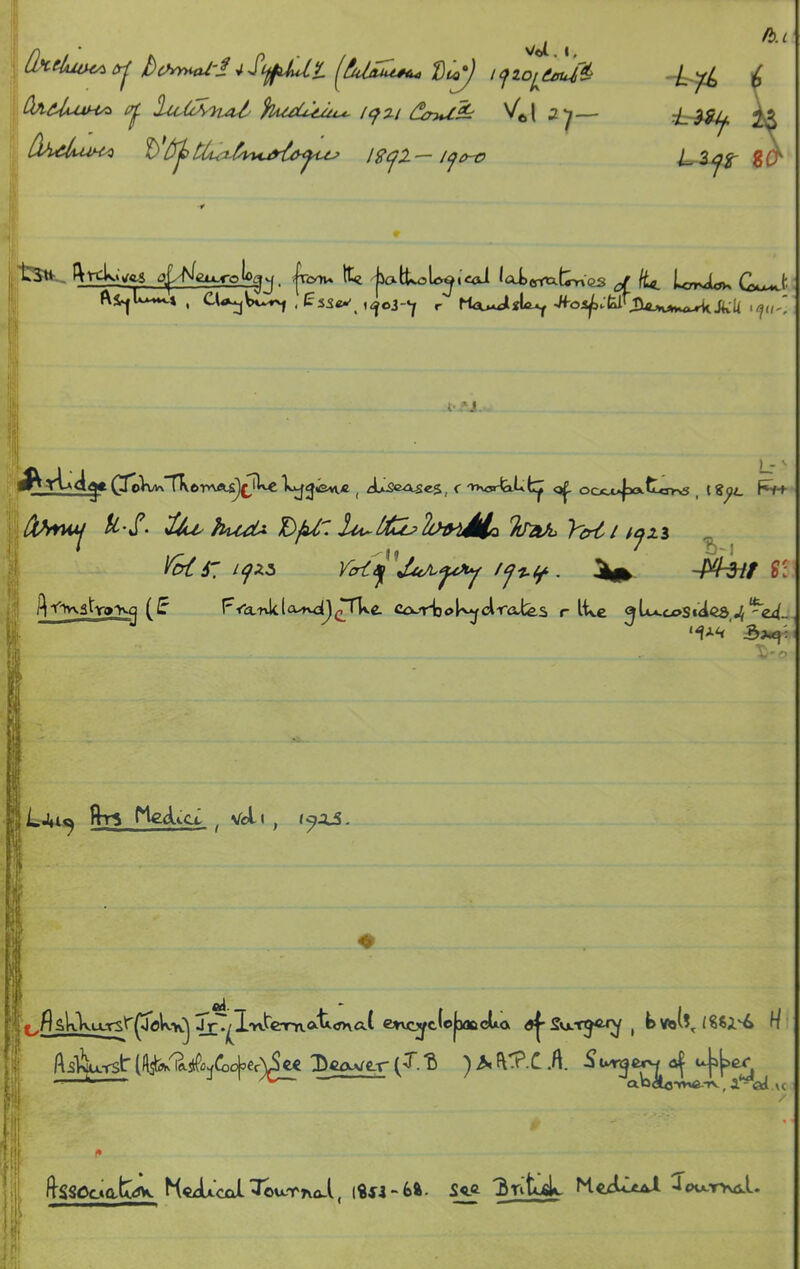 Vol. 1. B.i
Archives of Dermat-y & Syphilis (Urban 1920, contd
Archives of Internal Medicine 1921 Contd Vol 27—
Archives D'Ophthalmologie 1892 — 1900
L 76 6
L 384 23
L 398 80
Archives of Neurology, from the pathological laboratories of the London County
Asylums, Claybury, Essex, 1903-7 r Maudsley Hospital Denmark Hill 1911-
Arlidge (John Thomas) The hygiene, diseases, r mortality of occupations, 1892
Army U.S. The Med. Dept. in the World War Vol I 1923
Vol 5. 1923 Vol " Surgery 1924.
Armstrong (E Frankland) The carbohydrates r the glucosides, 4th ed.
1924
L419 Ars Medici, Vol 1, 1925.
Ashhurst (John) Jr. ed. International encyclopaedia of Surgery, 6 vols, 1882-6 H
Ashhurst (Astley Cooper) See Deaver (J.B ) & A.P.C.A. Surgery of upper
abdomen, 2nd ed.
Association Medical Journal, 1853-6. See British Medical Journal.